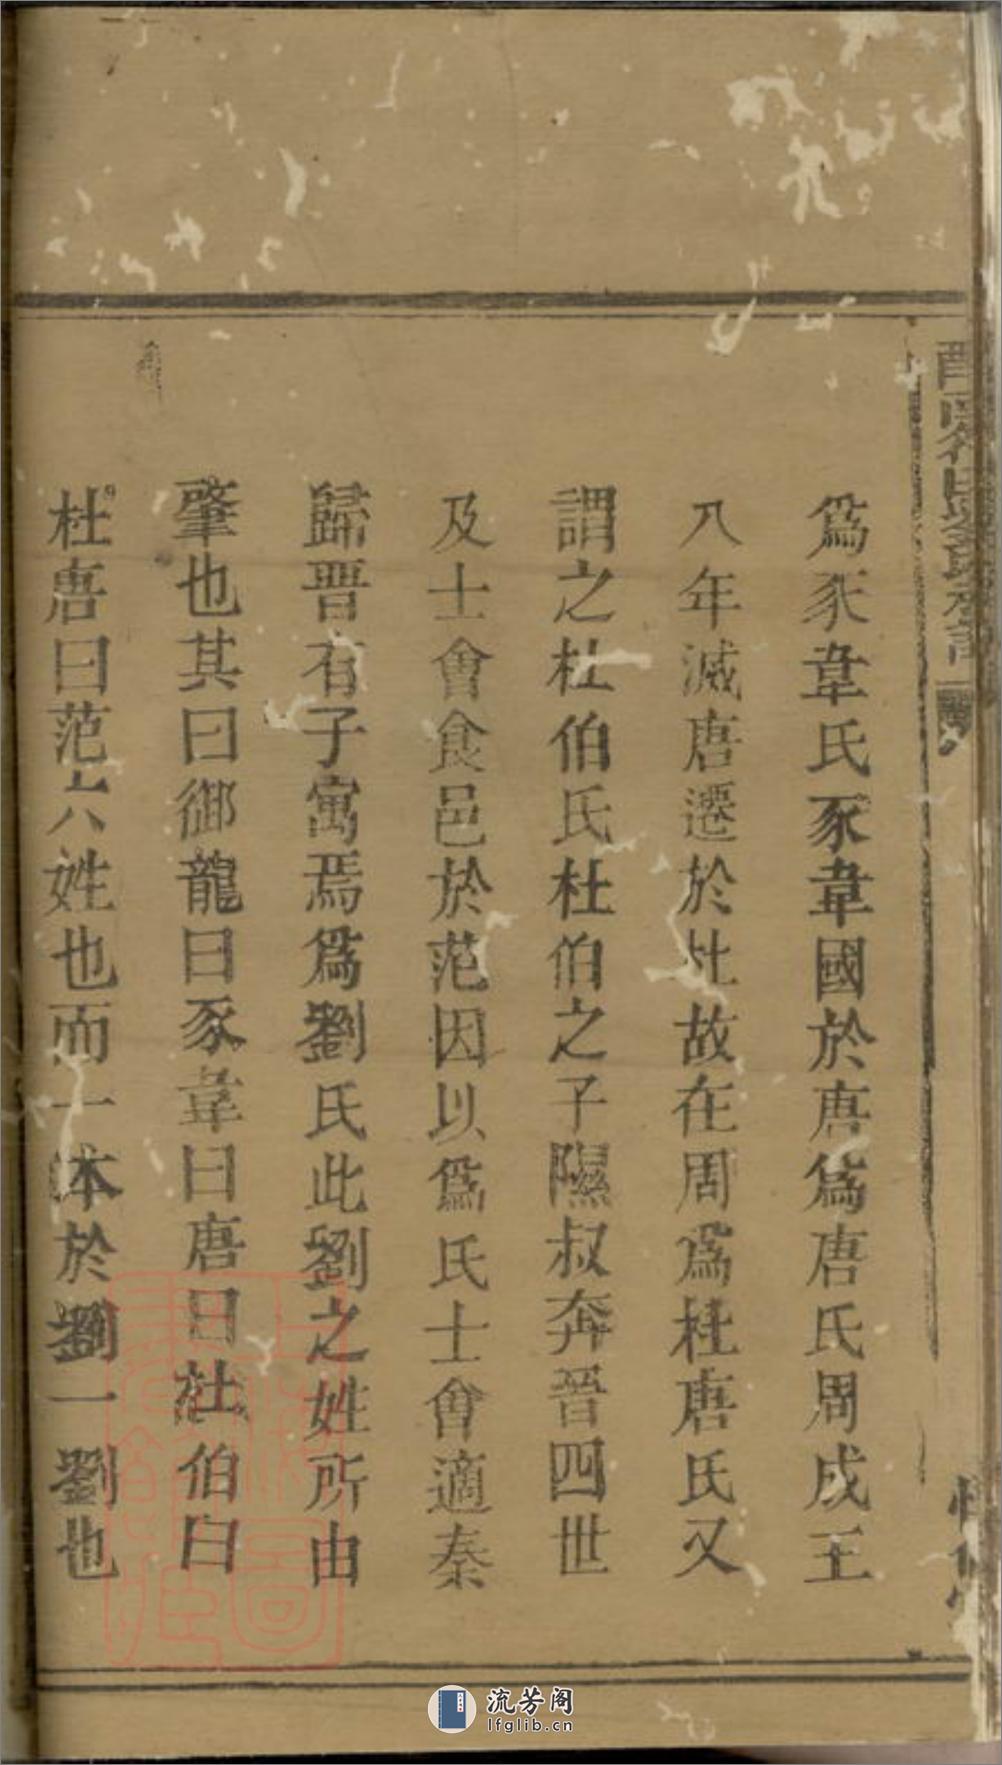 爲豕韋氏豕韋國於唐爲唐氏周成王
八年滅唐遷於杜故在周爲杜唐氏又
謂之杜伯氏杜伯之子隰叔奔晉四世
及士會食邑於范因以爲氏士會適秦
歸晋有子寓焉爲劉氏此劉之姓所由
肇也其曰御龍曰豕韋曰唐曰杜伯曰
杜唐曰范六姓也而一本於劉一劉也
流芳阁
lfglib.cn